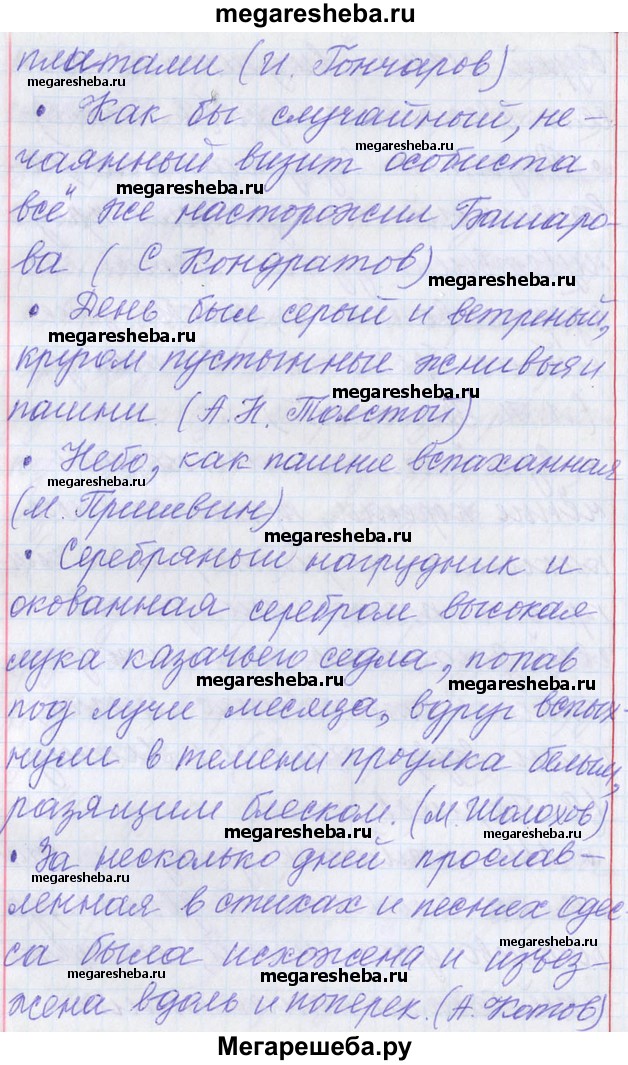 megaresheba.ru
платами (И. Гончаров)
megaresheba.ru
• Как бы случайный, не-
megaresheba.ru
чаянный визит особиста
megaresheba.ru
всё же насторожил Башаро-
ва ( С. Кондратов)
megaresheba.ru
• День был серый и ветреный,
megaresheba.ru
кругом пустынные жнивья и
megaresheba.ru
пашни. (А.Н. Толстой)
• Небо, как пашня вспаханная
megaresheba.ru
(М. Пришвин)
megaresheba.ru
• Серебряный нагрудник и
окованная серебром высокая
лука казачьего седла, попав
megaresheba.ru
megaresheba.ru
под лучи месяца, вдруг вспых-
нули в темени проулка белым,
разящим блеском. (М. Шолохов)
megaresheba.ru
megaresheba.ru
• За несколько дней прослав-
megaresheba.ru
ленная в стихах и песнях Одес-
megaresheba.ru
са была исхожена и изъез-
megaresheba.ru
megaresheba.ru
жена вдоль и поперек. (А. Котов)
Мегарешеба.ру